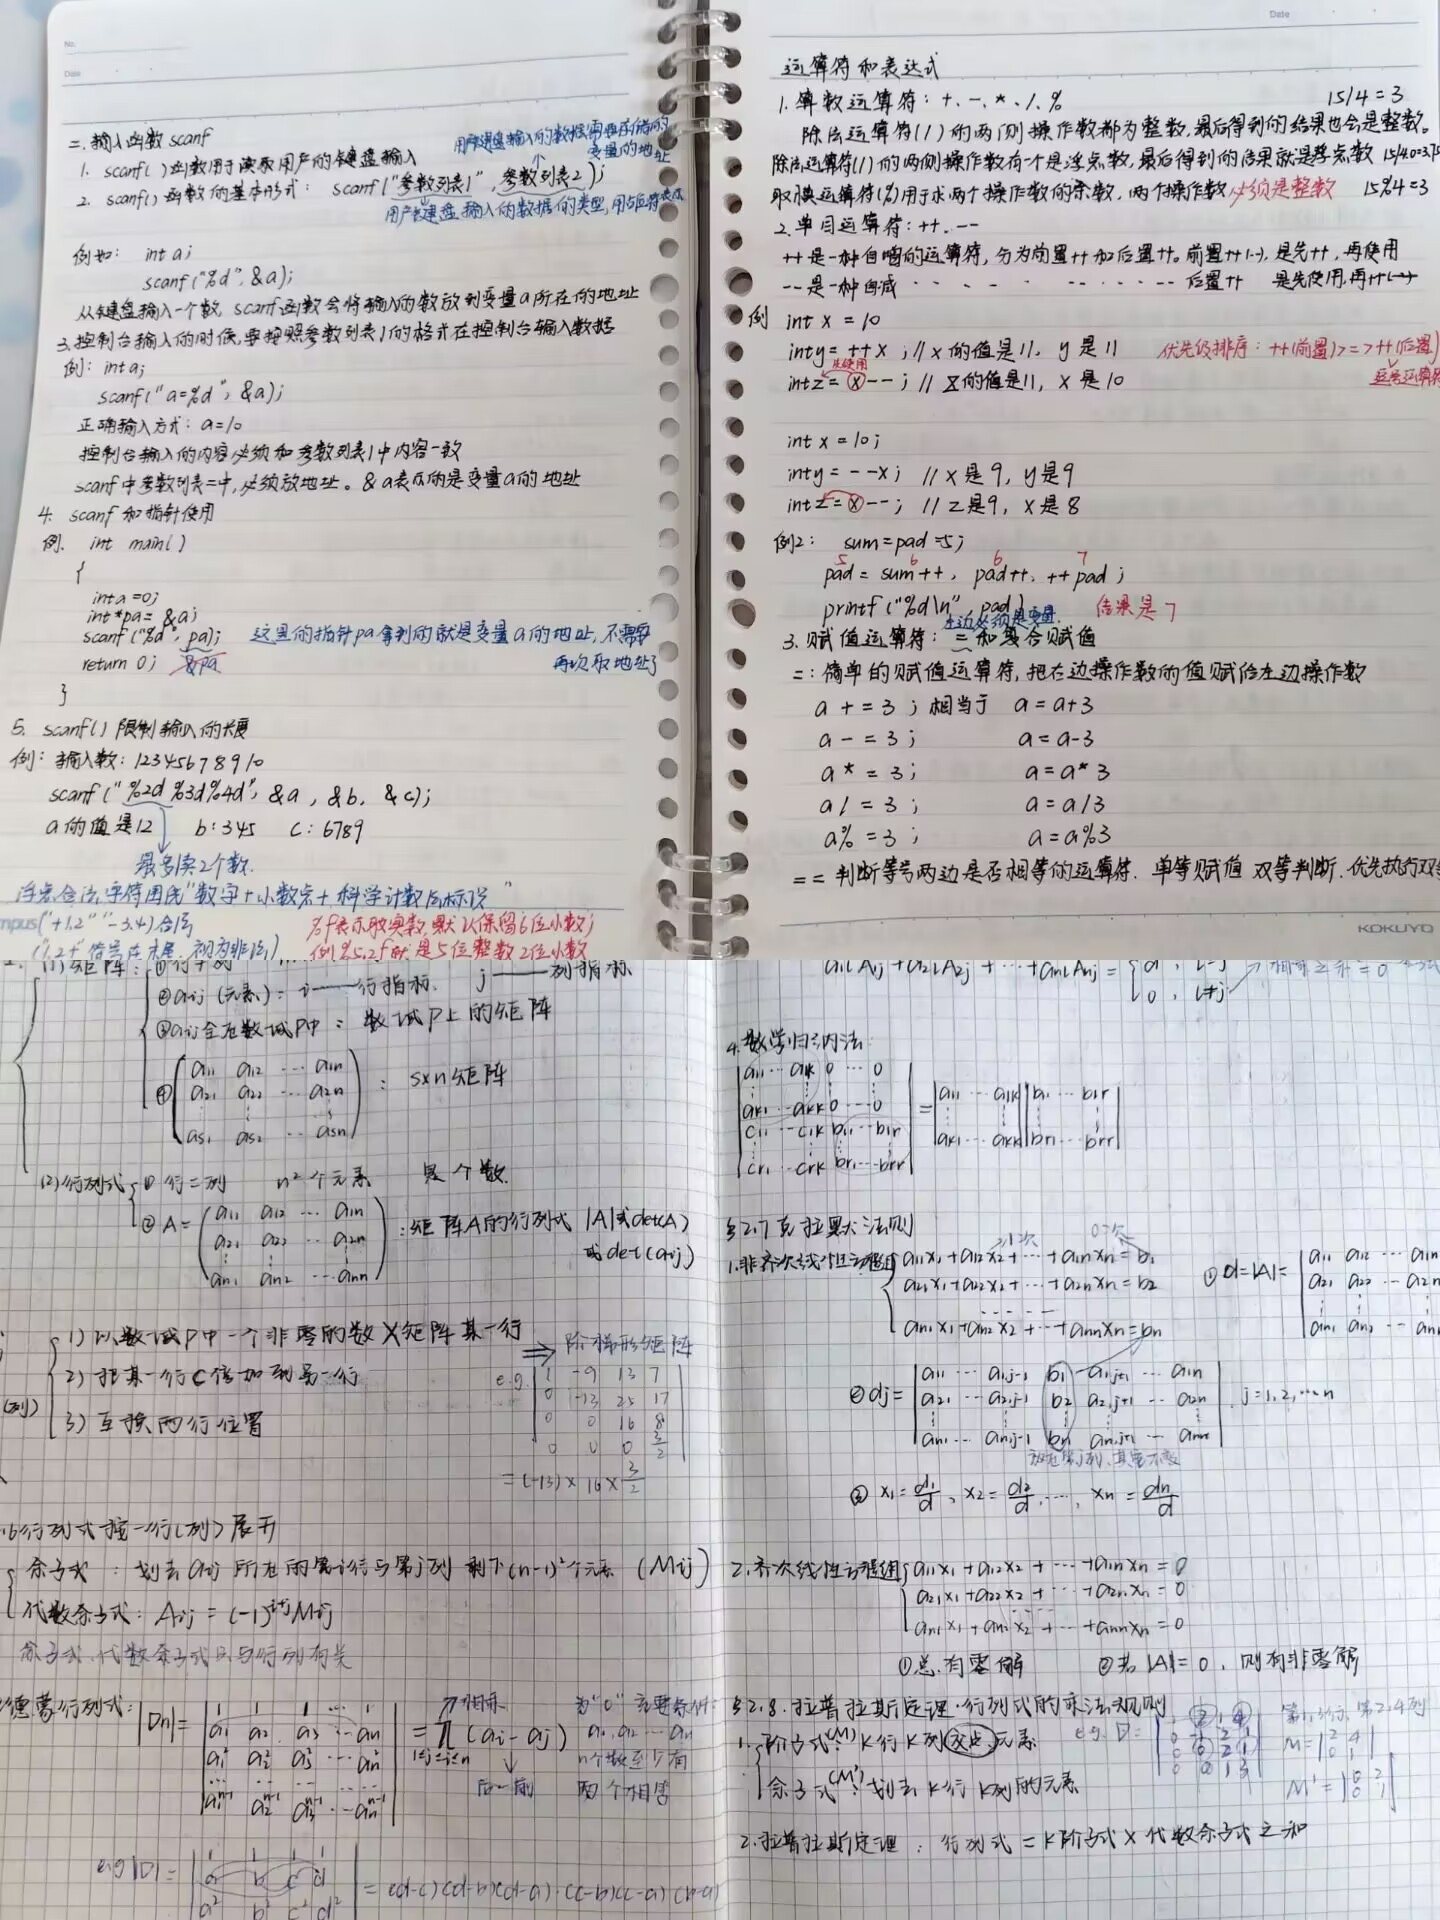 No.
Date
二. 输入函数 scanf
用户键盘输入的数据需要存储的
变量的地址
1. scanf( ) 函数用于读取用户的键盘输入
2. scanf( ) 函数的基本形式: scanf("参数列表1", 参数列表2 );
用户键盘输入的数据的类型,用占位符表示
例如: int a;
scanf("%d", &a);
从键盘输入一个数, scanf函数会将输入的数放到变量a所在的地址
3.控制台输入的时候,要按照参数列表1的格式在控制台输入数据
例: int a;
scanf("a=%d", &a);
正确输入方式: a=10
控制台输入的内容必须和参数列表1中内容一致
scanf中参数列表二中,必须放地址。&a表示的是变量a的地址
4. scanf 和指针使用
例. int main( )
{
int a =0;
int*pa= &a;
scanf("%d", pa); 这里的指针pa拿到的就是变量a的地址,不需要
return 0; &pa 再次取地址了
}
5. scanf( ) 限制输入的长度
例: 输入数: 12345678910
scanf("%2d%3d%4d", &a, &b, &c);
a的值是12 b:345 c: 6789
最多读2个数.
浮点合法字符围绕"数字+小数点+科学计数法标识"
mpus("+1.2" "-3.4)合法
("1.2+" 符号在末尾,视为非法)
%f表示取实数,默认保留6位小数;
例%5.2f就是5位整数2位小数
Date
运算符和表达式
1. 算数运算符: +、-、*、/、% 15/4=3
除法运算符(/) 的两侧操作数都为整数,最后得到的结果也会是整数。
除法运算符(/)的两侧操作数有一个是浮点数,最后得到的结果就是浮点数 15/4.0=3.75
取模运算符(%)用于求两个操作数的余数,两个操作数必须是整数 15%4=3
2.单目运算符: ++、--
++是一种自增的运算符,分为前置++和后置++。前置++(--),是先++,再使用
--是一种自减 后置++ 是先使用,再++(--)
例 int x = 10
int y = ++x ; // x 的值是11, y 是11 优先级排序: ++(前置)>=>++(后置)
先使用 逗号运算符
int z = x-- ; // z的值是11, x是10
int x = 10;
int y = --x; // x是9, y是9
int z = x--; // z是9, x是8
例2: sum=pad=5;
5 6 6 7
pad = sum++, pad++, ++pad ;
printf("%d\n", pad) 结果是7
左边必须是变量.
3. 赋值运算符: = 和复合赋值
= : 简单的赋值运算符,把右边操作数的值赋给左边操作数
a + = 3 ; 相当于 a = a+3
a - = 3 ; a = a-3
a * = 3 ; a = a*3
a / = 3 ; a = a/3
a% = 3 ; a = a%3
== 判断等号两边是否相等的运算符. 单等赋值 双等判断.优先执行双等
KOKUYO
(1)矩阵: ①行≠列
②aij (元素): i——行指标. j——列指标
③aij全在数域P中: 数域P上的矩阵
④ a11 a12 … a1n
a21 a22 … a2n : s×n矩阵
as1 as2 … asn
(2)行列式 ① 行=列 n²个元素 是个数.
② A= a11 a12 … a1n
a21 a22 … a2n :矩阵A的行列式 |A|或det(A)
an1 an2 … ann 或det(aij)
1) 以数域P中一个非零的数×矩阵某一行
2) 把某一行C倍加到另一行
3) 互换两行位置
(列)
⇒ 阶梯形矩阵
e.g. 1 -9 13 7
0 -13 25 17
0 0 16 8
0 0 0 3/2
=(-13)×16×3/2
行列式按一行(列)展开
余子式 : 划去aij所在的第i行与第j列 剩下(n-1)²个元素 (Mij)
代数余子式: Aij = (-1)^{i+j} Mij
余子式、代数余子式只与行列有关
德蒙行列式: |Dn|= 1 1 1 … 1
a1 a2 a3 … an
a1² a2² a3² … an²
… … …
a1^{n-1} a2^{n-1} a3^{n-1} … an^{n-1}
= ∏ (ai - aj)
1≤j<i≤n
相乘
后-前
为"0" 充要条件:
a1,a2…an
n个数至少有
两个相等
e.g |D|= 1 1 1 1
a b c d
a² b² c² d²
= (d-c)(d-b)(d-a)·(c-b)(c-a)(b-a)
a1iA1j+a2iA2j+…+aniAnj= d , i=j
0 , i≠j
4.数学归纳法
a11 … a1k 0 … 0
ak1 … akk 0 … 0
c11 … c1k b11 … b1r
cr1 … crk br1 … brr
= a11 … a1k b11 … b1r
ak1 … akk br1 … brr
§2.7 克拉默法则
1次 0次
1.非齐次线性方程组 a11x1+a12x2+…+a1nxn=b1
a21x1+a22x2+…+a2nxn=b2
an1x1+an2x2+…+annxn=bn
①d=|A|= a11 a12 … a1n
a21 a22 … a2n
an1 an2 … ann
②dj= a11 … a1,j-1 b1 a1,j+1 … a1n
a21 … a2,j-1 b2 a2,j+1 … a2n , j=1,2,…n
an1 … an,j-1 bn an,j+1 … ann
放在第j列,其余不变
③ x1=d1/d、x2=d2/d、…、xn=dn/d
2.齐次线性方程组 a11x1+a12x2+…+a1nxn=0
a21x1+a22x2+…+a2nxn=0
an1x1+an2x2+…+annxn=0
①总有零解 ②若|A|=0,则有非零解
§2.8.拉普拉斯定理·行列式的乘法规则
1. k阶子式(M): k行k列交点元素
余子式(M'): 划去k行k列的元素
e.g. D= 1 2 1 4
0 -1 2 1
0 0 2 1
0 0 1 3
第1,3行,第2,4列
M= 2 4
0 1
M'= 0 2
0 1
2.拉普拉斯定理: 行列式=k阶子式×代数余子式之和